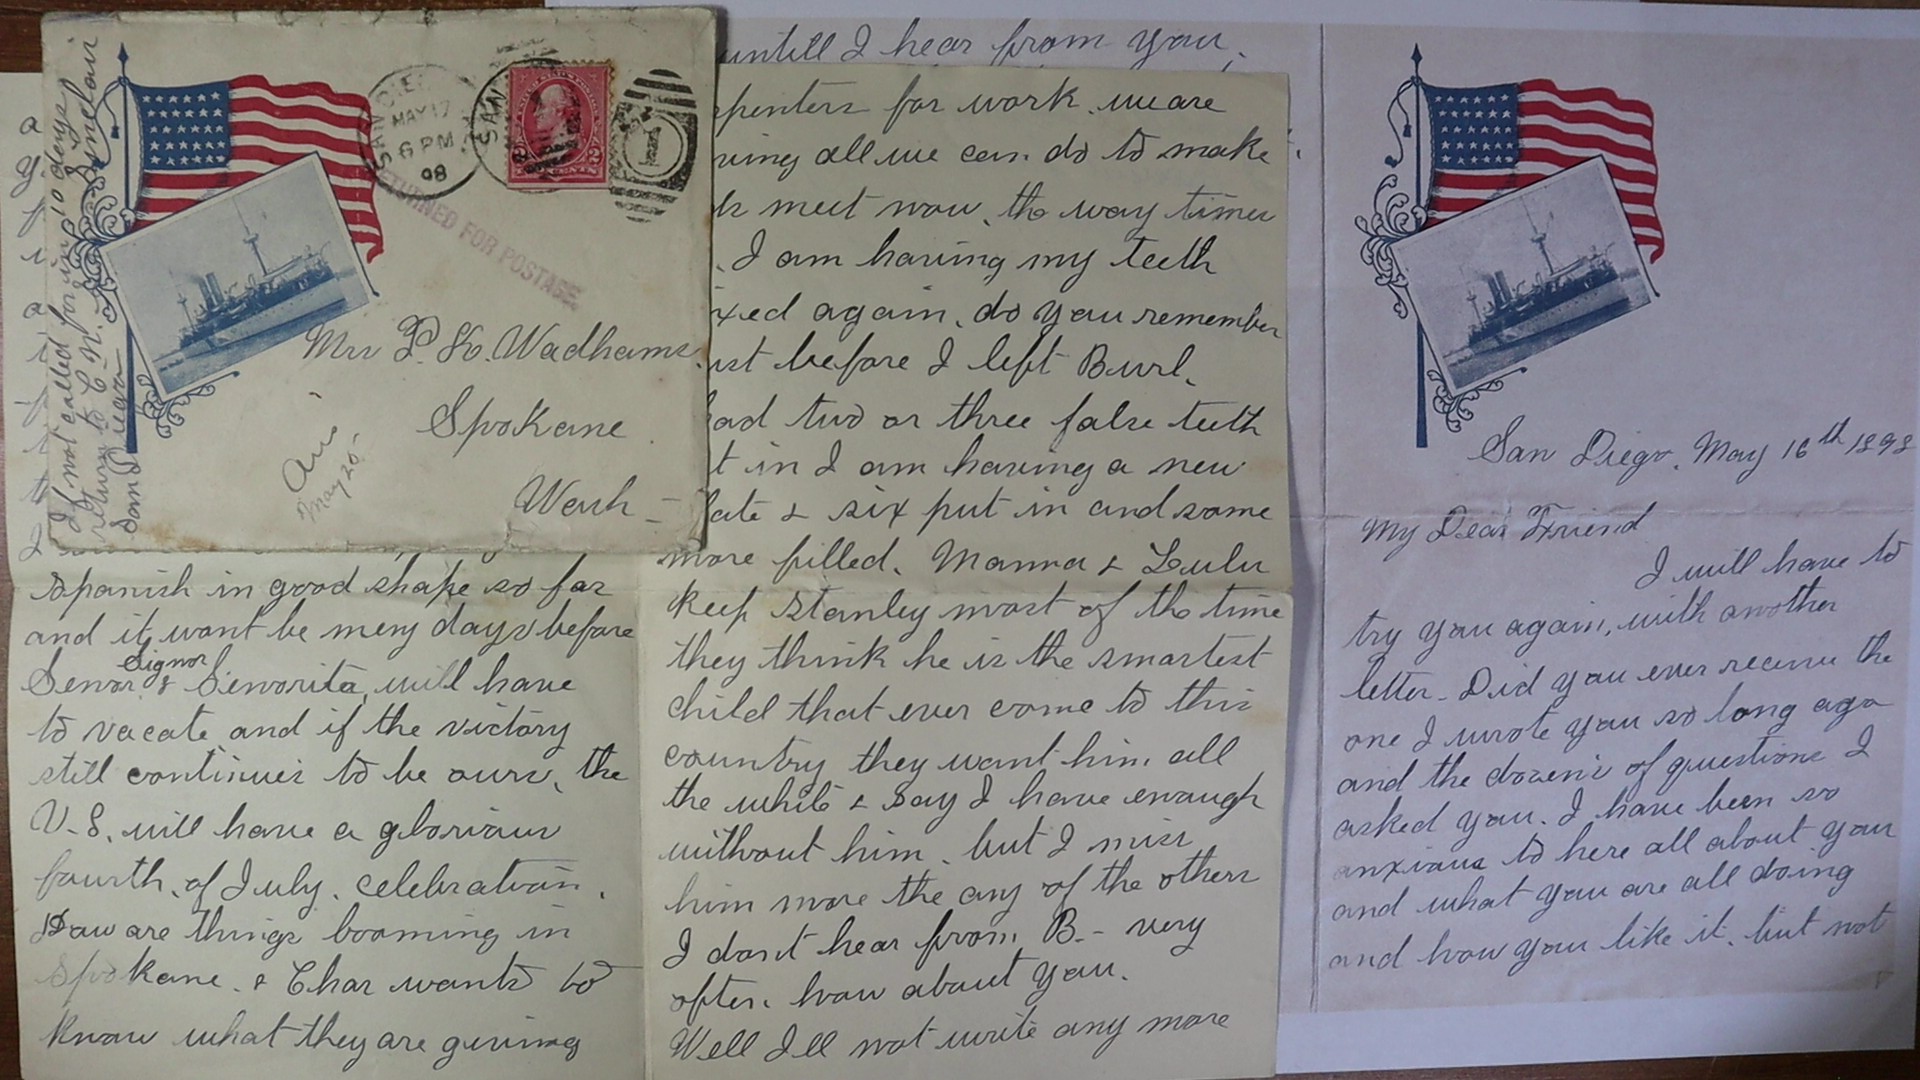 If not called for in 10 days
return to C. N. Sinclair
San Diego
SAN DIEGO
MAY 17
6 PM
98
SAN
2 CENTS 2
1
RETURNED FOR POSTAGE
Mrs P. K. Wadhams
Spokane
Wash
Ans
May 25
a
y
a
I
Spanish in good shape so far
and it wont be meny days before
Signor
Senor & Senorita, will have
to vacate and if the victory
still continues to be ours, the
U.S. will have a glorious
fourth, of July, celebration.
How are things booming in
Spokane. & Char wants to
know what they are giving
penters for work, we are
ving all we can do to make
meet now, the way times
I am having my teeth
xed again, do you remember
ust before I left Burl.
had two or three false teeth
t in I am having a new
late & six put in and some
more filled. Mamma & Lulu
keep Stanley most of the time
they think he is the smartest
child that ever come to this
country they want him all
the while & say I have enough
without him, but I miss
him more the any of the others
I don't hear from B.- very
often. how about you.
Well Ill not write any more
untill I hear from you.
San Diego, May 16th 1898
My Dear Friend
I will have to
try you again, with another
letter. Did you ever receive the
one I wrote you so long ago
and the dozen's of questions I
asked you. I have been so
anxious to here all about you
and what you are all doing
and how you like it, but not